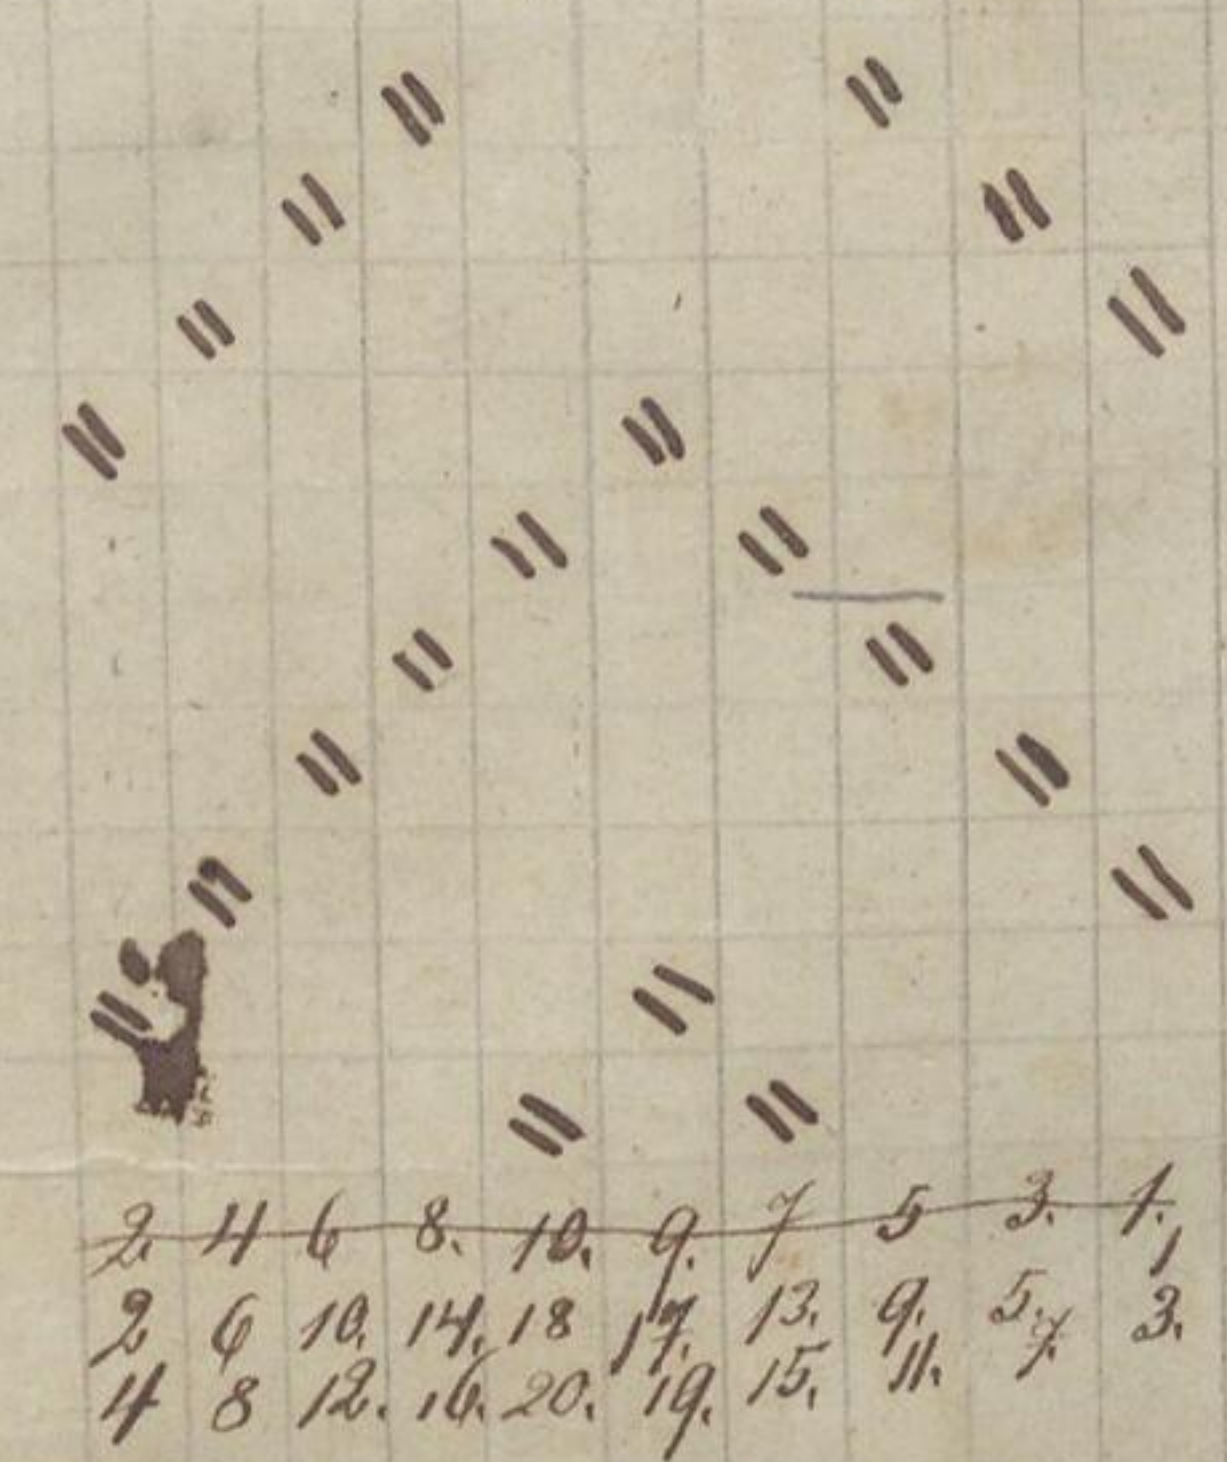 2. 4 6 8. 10. 9. 7 5 3. 1.
1
2 6 10. 14. 18 17. 13. 9. 5. 3.
4 8 12. 16. 20. 19. 15. 11. 7.